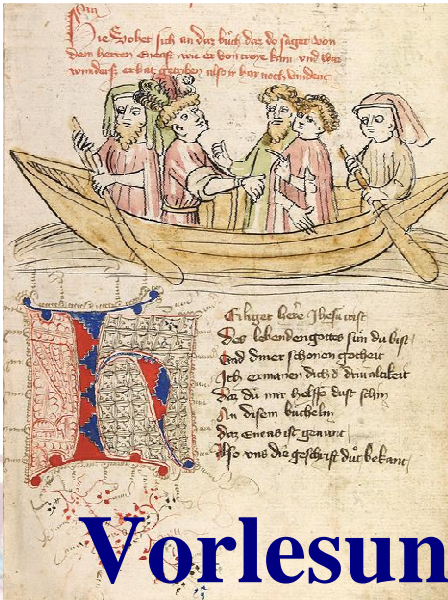 Hie vohet sich an daz buch daz do saget von
dem herren Eneas wie er von troye kam vnd waz
wunders er hat getriben also har noch
Heiliger herre Jhesu crist
Des lebenden gottes sun du bist
Vnd diner schonen gotheit
Ich ermanen dich d drivaltikeit
Daz du mir helffe dust schin
An disem buchelin
Daz Eneas ist genant
Also vns die geschrift dut bekant
Vorlesun